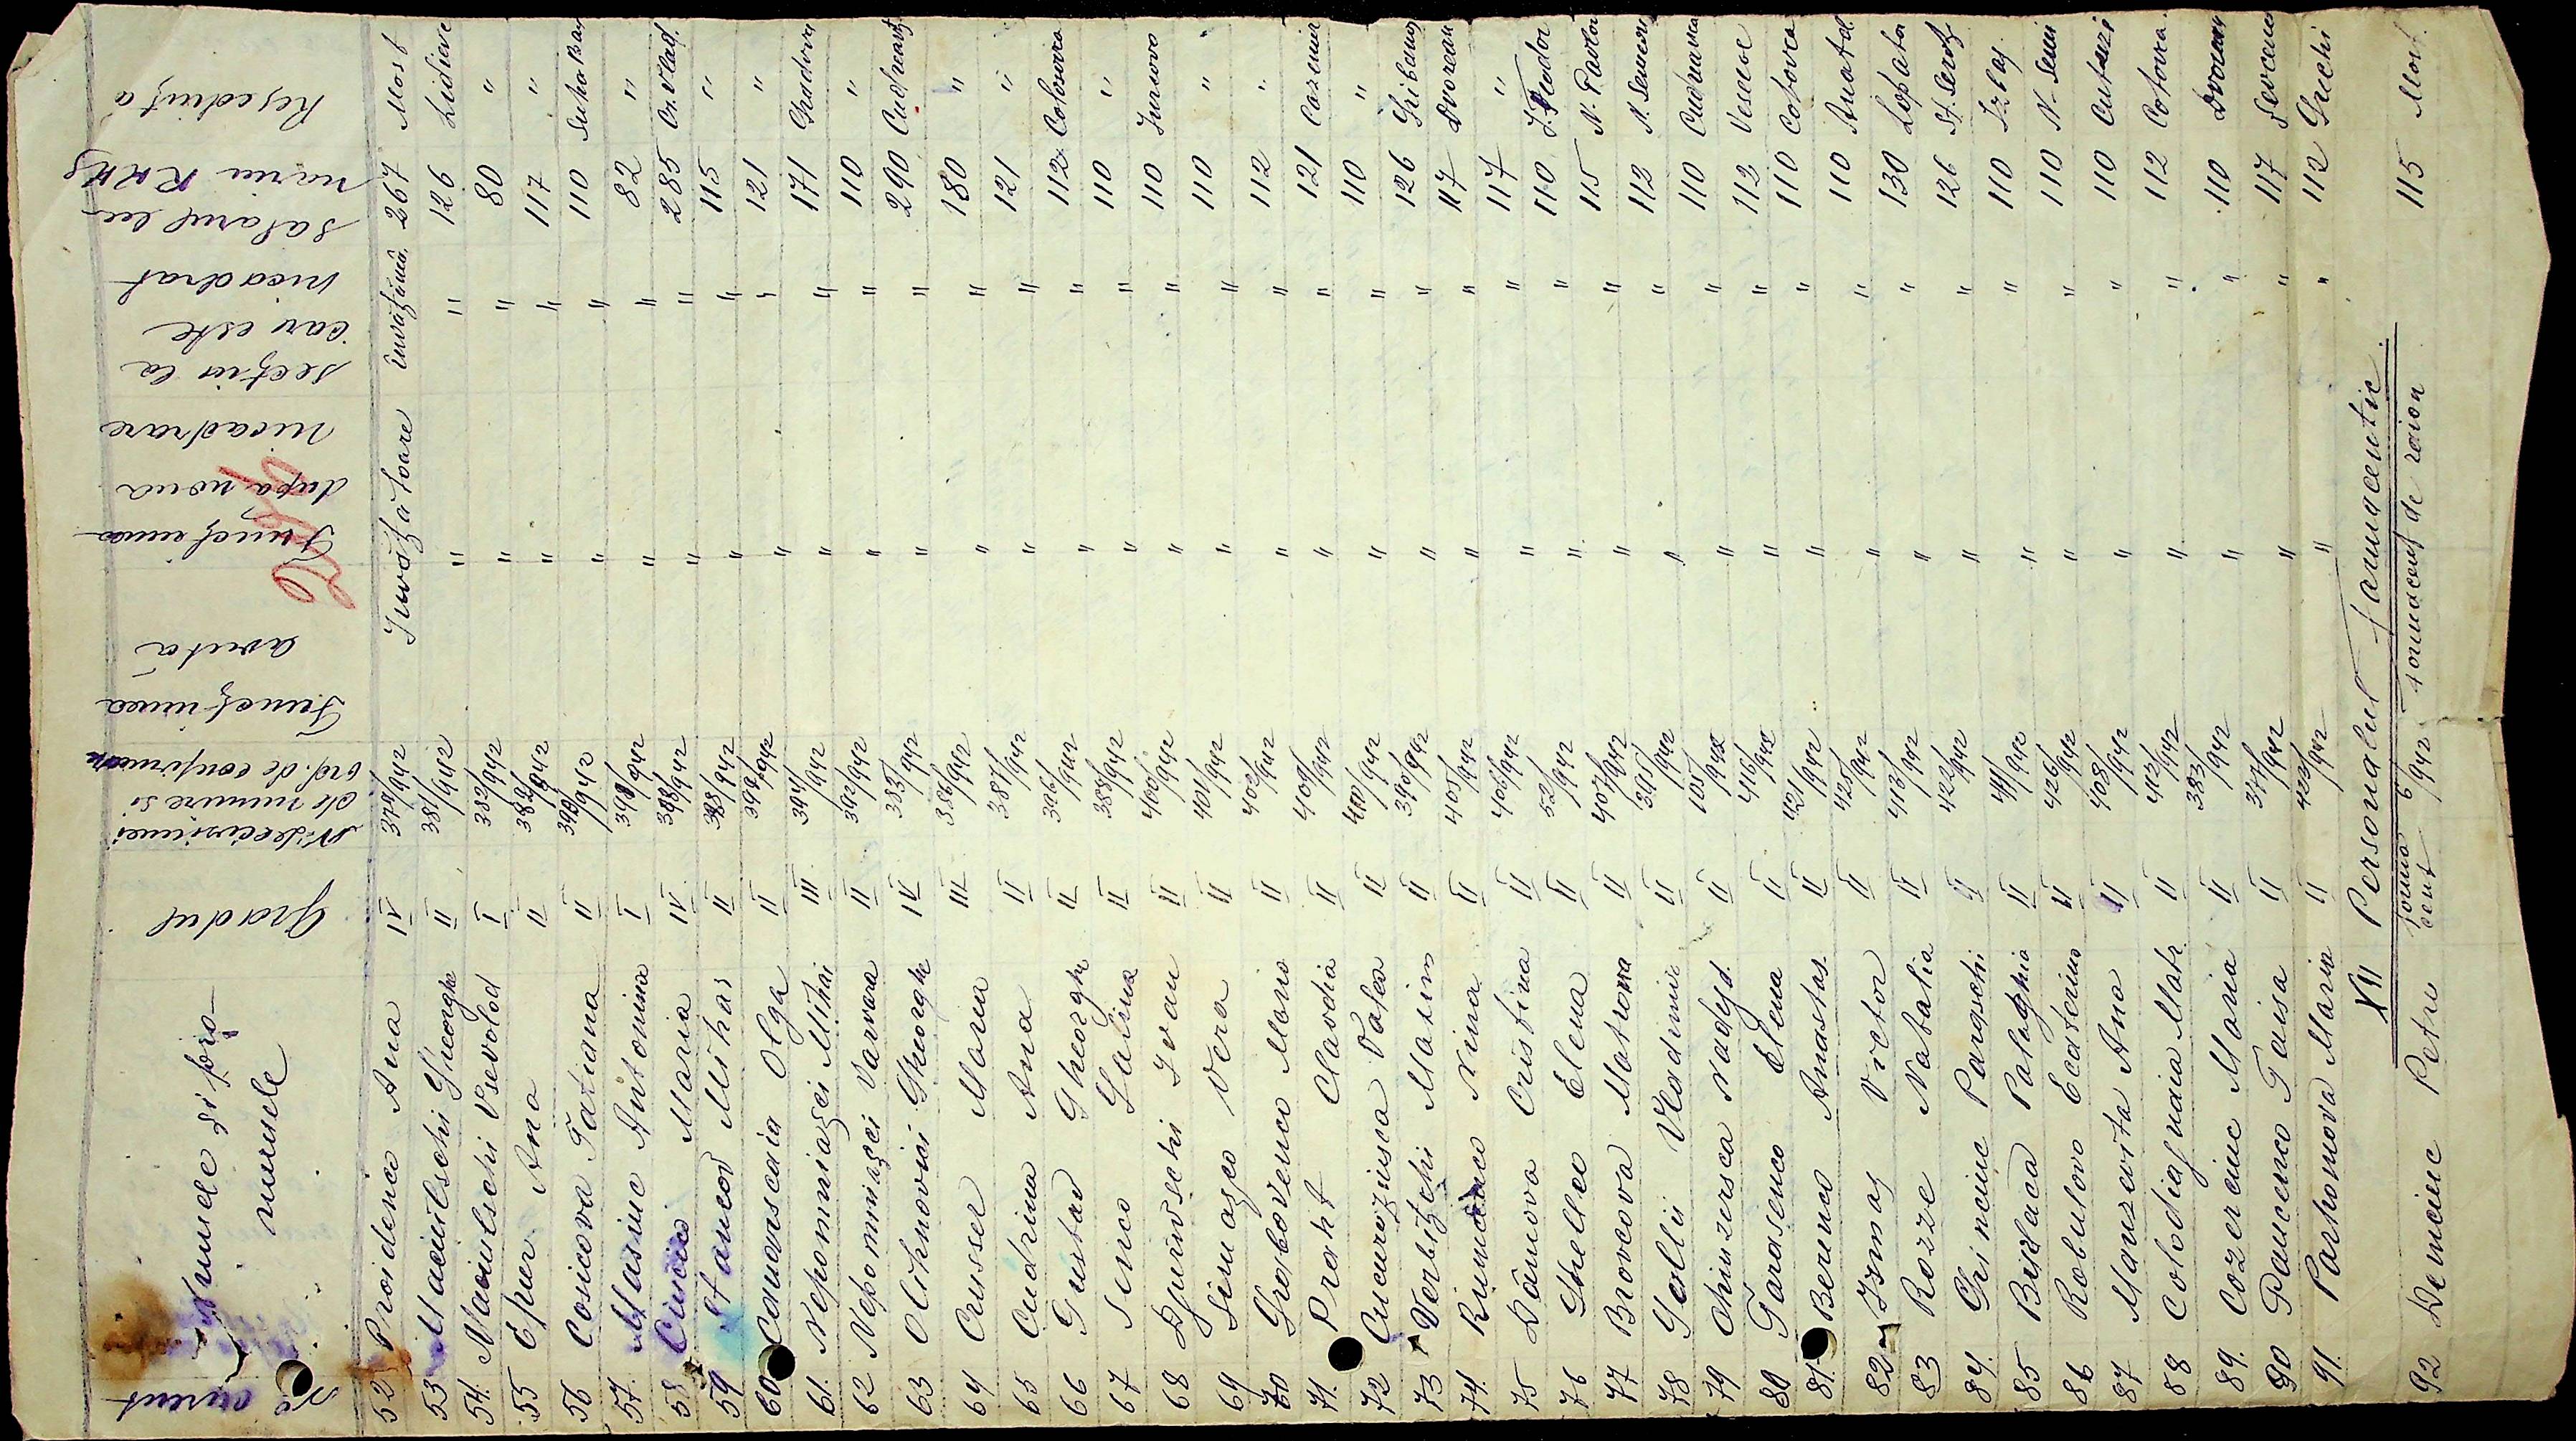 No curent | Numele și pronumele | Gradul | No deciziunei de numire și ord. de confirmare | Funcțiunea avută | Funcțiunea după noua încadrare | secția la care este încadrat | Salarul lunar RKKS | Reședința
52 Proidenco Ana IV 379/942 Învățătoare învățămâ. 267 Most
53 Maciulschi Gheorghe II 381/942 " " 126 Lidieve
54. Maciulschi Vsevolod I 382/942 " " 80 "
55 Epur Ana II 382/942 " " 117 "
56 Cosicova Tatiana II 390/942 " " 110 Suha Bal
57. Masiuc Antonina I 391/942 " " 82 "
58 Maria IV 388/942 " " 285 Cr. Vlad.
59 Stancov Mihai II /942 " " 115 "
60 Camanscaia Olga II /942 " " 121 "
61. Nepomniașci Mihai III 394/942 " " 171 Gradovca
62 Nepomniașci Varvara II 392/942 " " 110 "
63 Olihnovici Gheorghe IV 383/942 " " 290 Cudreavț
64 Crusser Maria III 386/942 " " 180 "
65 Cudrina Ana II 387/942 " " 121 "
66 Gustav Gheorghe II 396/942 " " 112 Colosovca
67 Senco Galina II 388/942 " " 110 "
68 Djurivschi Ivan II 400/942 " " 110 Jurcovo
69 Simașco Vera II 401/942 " " 110 "
70 Grabovenco Maria II 402/942 " " 112 "
71. Praht Clavdia II 409/942 " " 121 Cosmina
72 Valea II 410/942 " " 110 "
73 Verbițchi Maxim II 390/942 " " 126 Gribanos
74. Nina II 405/942 " " 117 Dvorean
75 Danova Cristina II 406/942 " " 117 "
76 Sheltco Elena II 52/942 " " 110 T. Feodor
77 Brovcova Matrona II 407/942 " " 115 N. Pavlov
78 Gallii Vladimir II 395/942 " " 112 N. Semen
79 Ohinzersca Nadejd. II 105/942 " " 110 Cudreavca
80 Tarasenco Elena II 416/942 " " 112 Veseloe
81. Berenco Anastas. II 421/942 " " 110 Cotovca
82 Izmaș Victor II 425/942 " " 110 Anatol.
83 Rozze Natalia II 413/942 " " 130 Lopata
84. Grinciuc Parașchi II 422/942 " " 126 Sf. Serof
85 Palaghia II /942 " " 110 Izlaș
86 Robulovo Ecaterina II 426/942 " " 110 N. Semi
87 Manzevita Ana II 408/942 " " 110 Cutuzi
88 Colodiajnaia Matr. II 412/942 " " 112 Cotovca.
89. Cozerciuc Maria II 383/942 " " 110 Dvorean
90 Pancenco Taisa II /942 " " 117 Sevcenco
91. Parhomova Maria II 423/942 " " 112 Grechi
XII Personalul farmaceutic.
92 Demciuc Petru 6/942 farmacent farmacist de raion 115 Most.